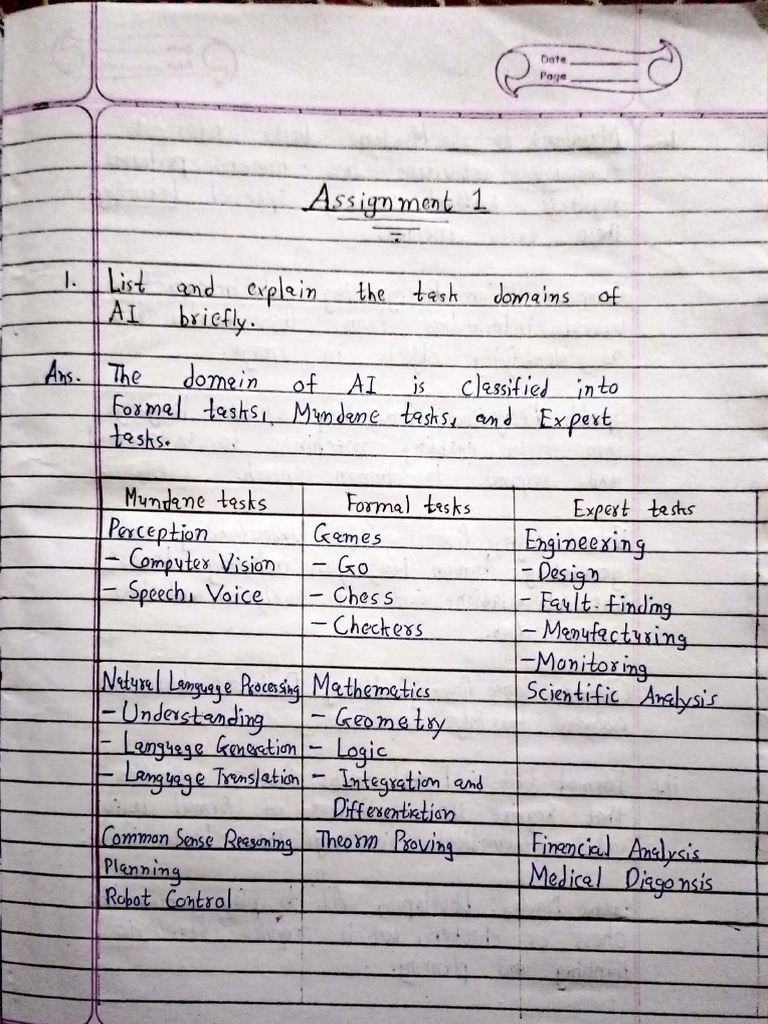 Date
Page
Assignment 1
1. List and explain the task domains of
AI briefly.
Ans. The domain of AI is classified into
Formal tasks, Mundane tasks, and Expert
tasks.
Mundane tasks Formal tasks Expert tasks
Perception Games Engineering
- Computer Vision - Go - Design
- Speech, Voice - Chess - Fault-finding
- Checkers - Manufacturing
- Monitoring
Natural Language Processing Mathematics Scientific Analysis
- Understanding - Geometry
- Language Generation - Logic
- Language Translation - Integration and
Differentiation
Common Sense Reasoning Theorm Proving Financial Analysis
Planning Medical Diagonsis
Robot Control